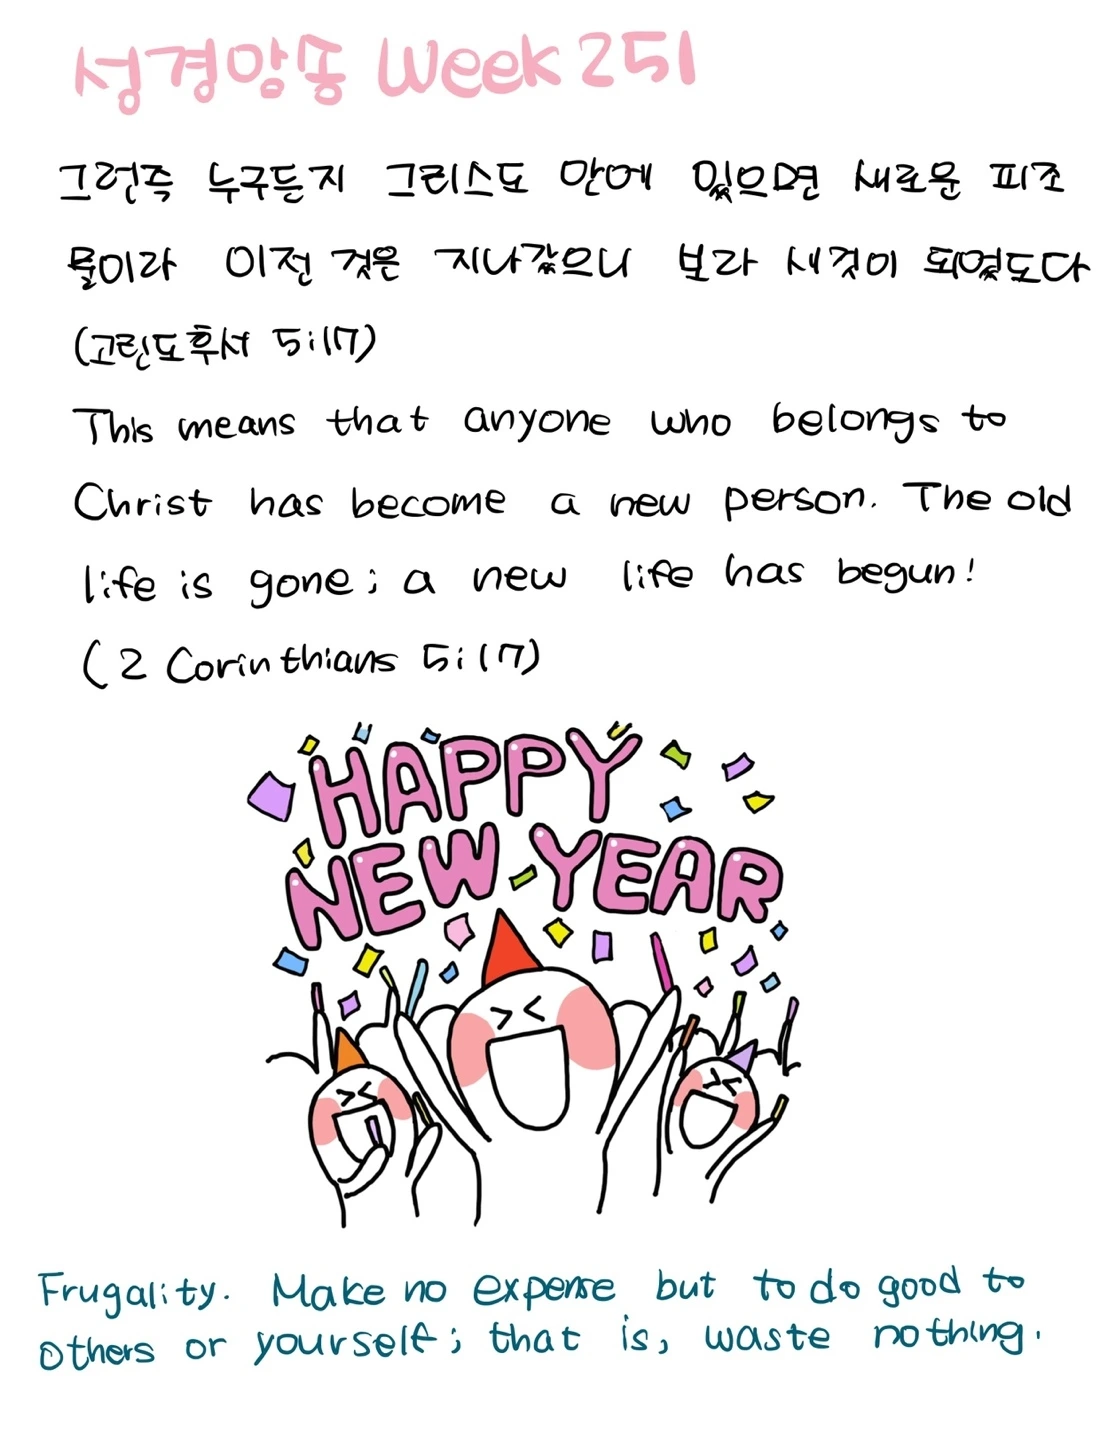 성경암송 Week 251
그런즉 누구든지 그리스도 안에 있으면 새로운 피조
물이라 이전 것은 지나갔으니 보라 새것이 되었도다
(고린도후서 5:17)
This means that anyone who belongs to
Christ has become a new person. The old
life is gone; a new life has begun!
(2 Corinthians 5:17)
HAPPY
NEW YEAR
Frugality. Make no expense but to do good to
others or yourself; that is, waste nothing.